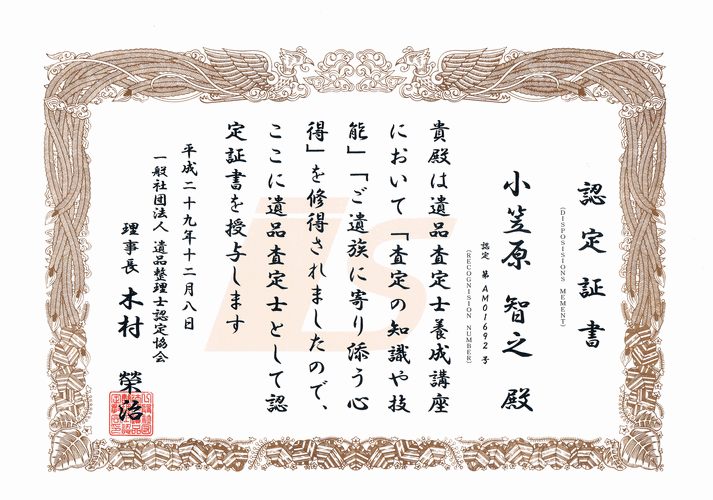 認定証書
(DISPOSISIONS MEMENT)
小笠原 智之 殿
認定 第 AM01692 号
(RECOGNISION NUMBER)
貴殿は遺品査定士養成講座
において「査定の知識や技
能」「ご遺族に寄り添う心
得」を修得されましたので、
ここに遺品査定士として認
定証書を授与します
平成二十九年十二月八日
一般社団法人 遺品整理士認定協会
理事長 木村 榮治